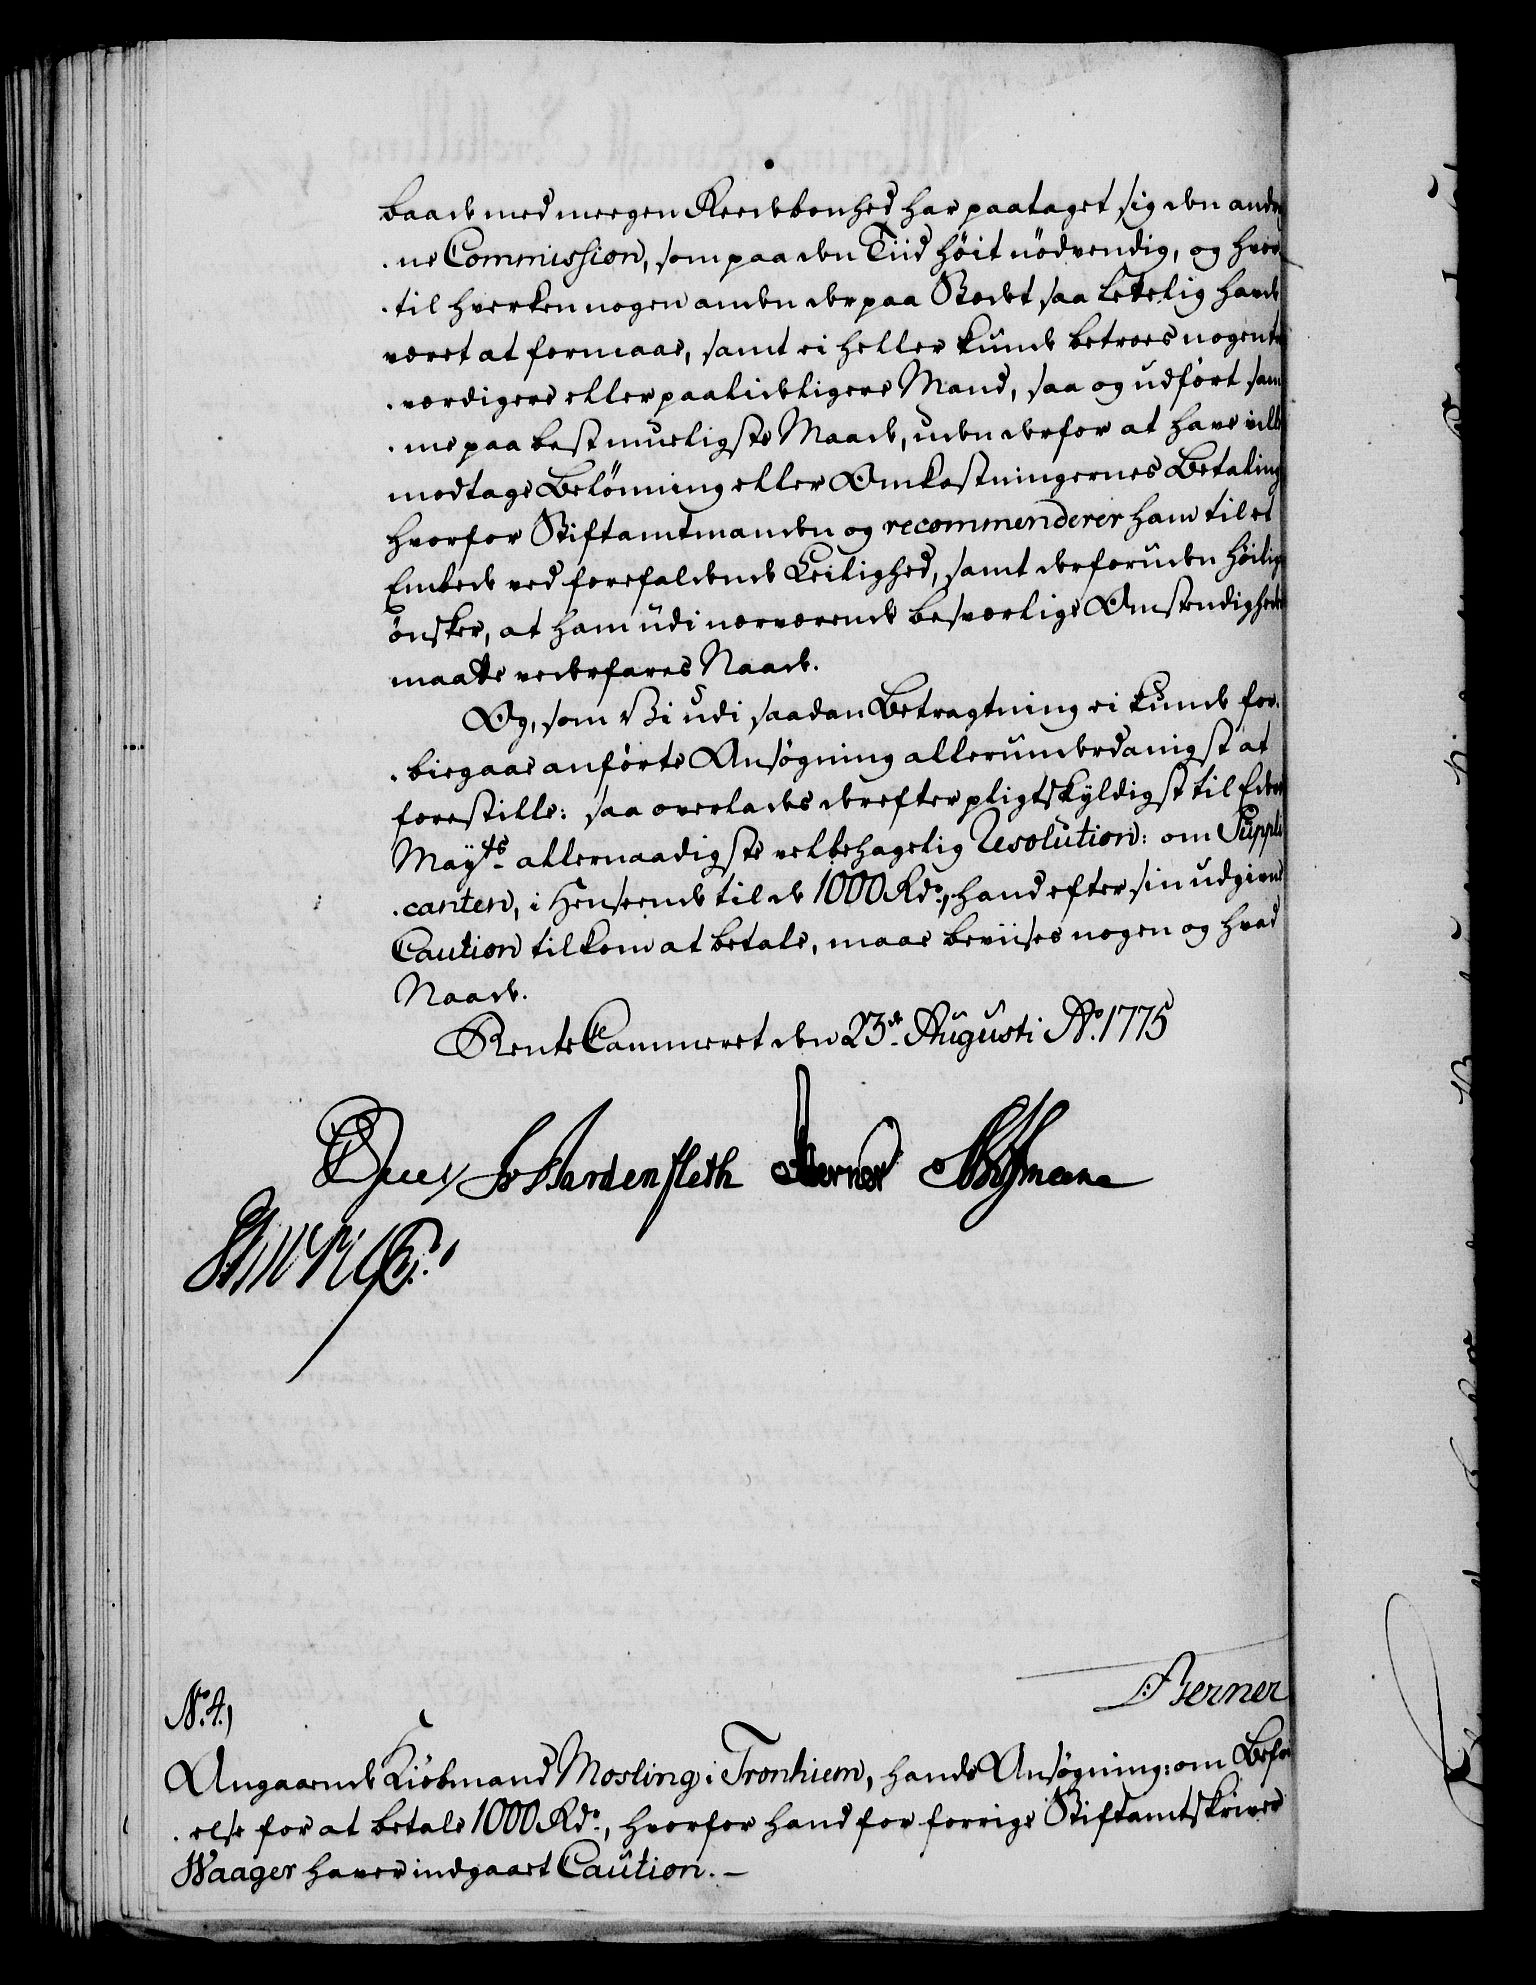 baade med meegen Reedebonhed har paataget sig den anden
ne Commission, som paa den Tiid höit nödvendig, og hvor
til hverken nogen anden der paa Stedet saa letelig havde
været at formaae, samt ei heller kunde betroes nogen tro
værdigere eller paalideligere Mand, saa og udfört sam
me paa best mueligste Maade, uden derfor at have vilde
modtage Belönning eller Omkostningernes Betaling
hvorfor Stiftamtmanden og recommenderer ham til et
Embede ved forefaldende Leilighed, samt derforuden höilig
önsker, at ham udi nærværende besværlige Omstendigheder
maatte vederfares Naade.
Og, som Vi udi saadan Betragtning ei kunde for
biegaae anförte Ansögning allerunderdanigst at
forestille: saa overlades derefter pligtskyldigst til Eders
Mayts allernaadigste velbehagelig Resolution: om Suppli
canten, i Henseende til de 1000 Rdr, hand efter sin udgivne
Caution tilkom at betale, maae beviises nogen og hvad
Naade.
RenteCammeret den 23de Augusti Ao 1775
Hardenfleth Berner Hoffmann
Berner
No. 4.)
Angaaende Kiöbmand Mosling i Tronhiem, hands Ansögning: om Befri
else for at betale 1000 Rdr, hvorfor hand for forrige Stiftamtskriver
Waager haver indgaaet Caution. –